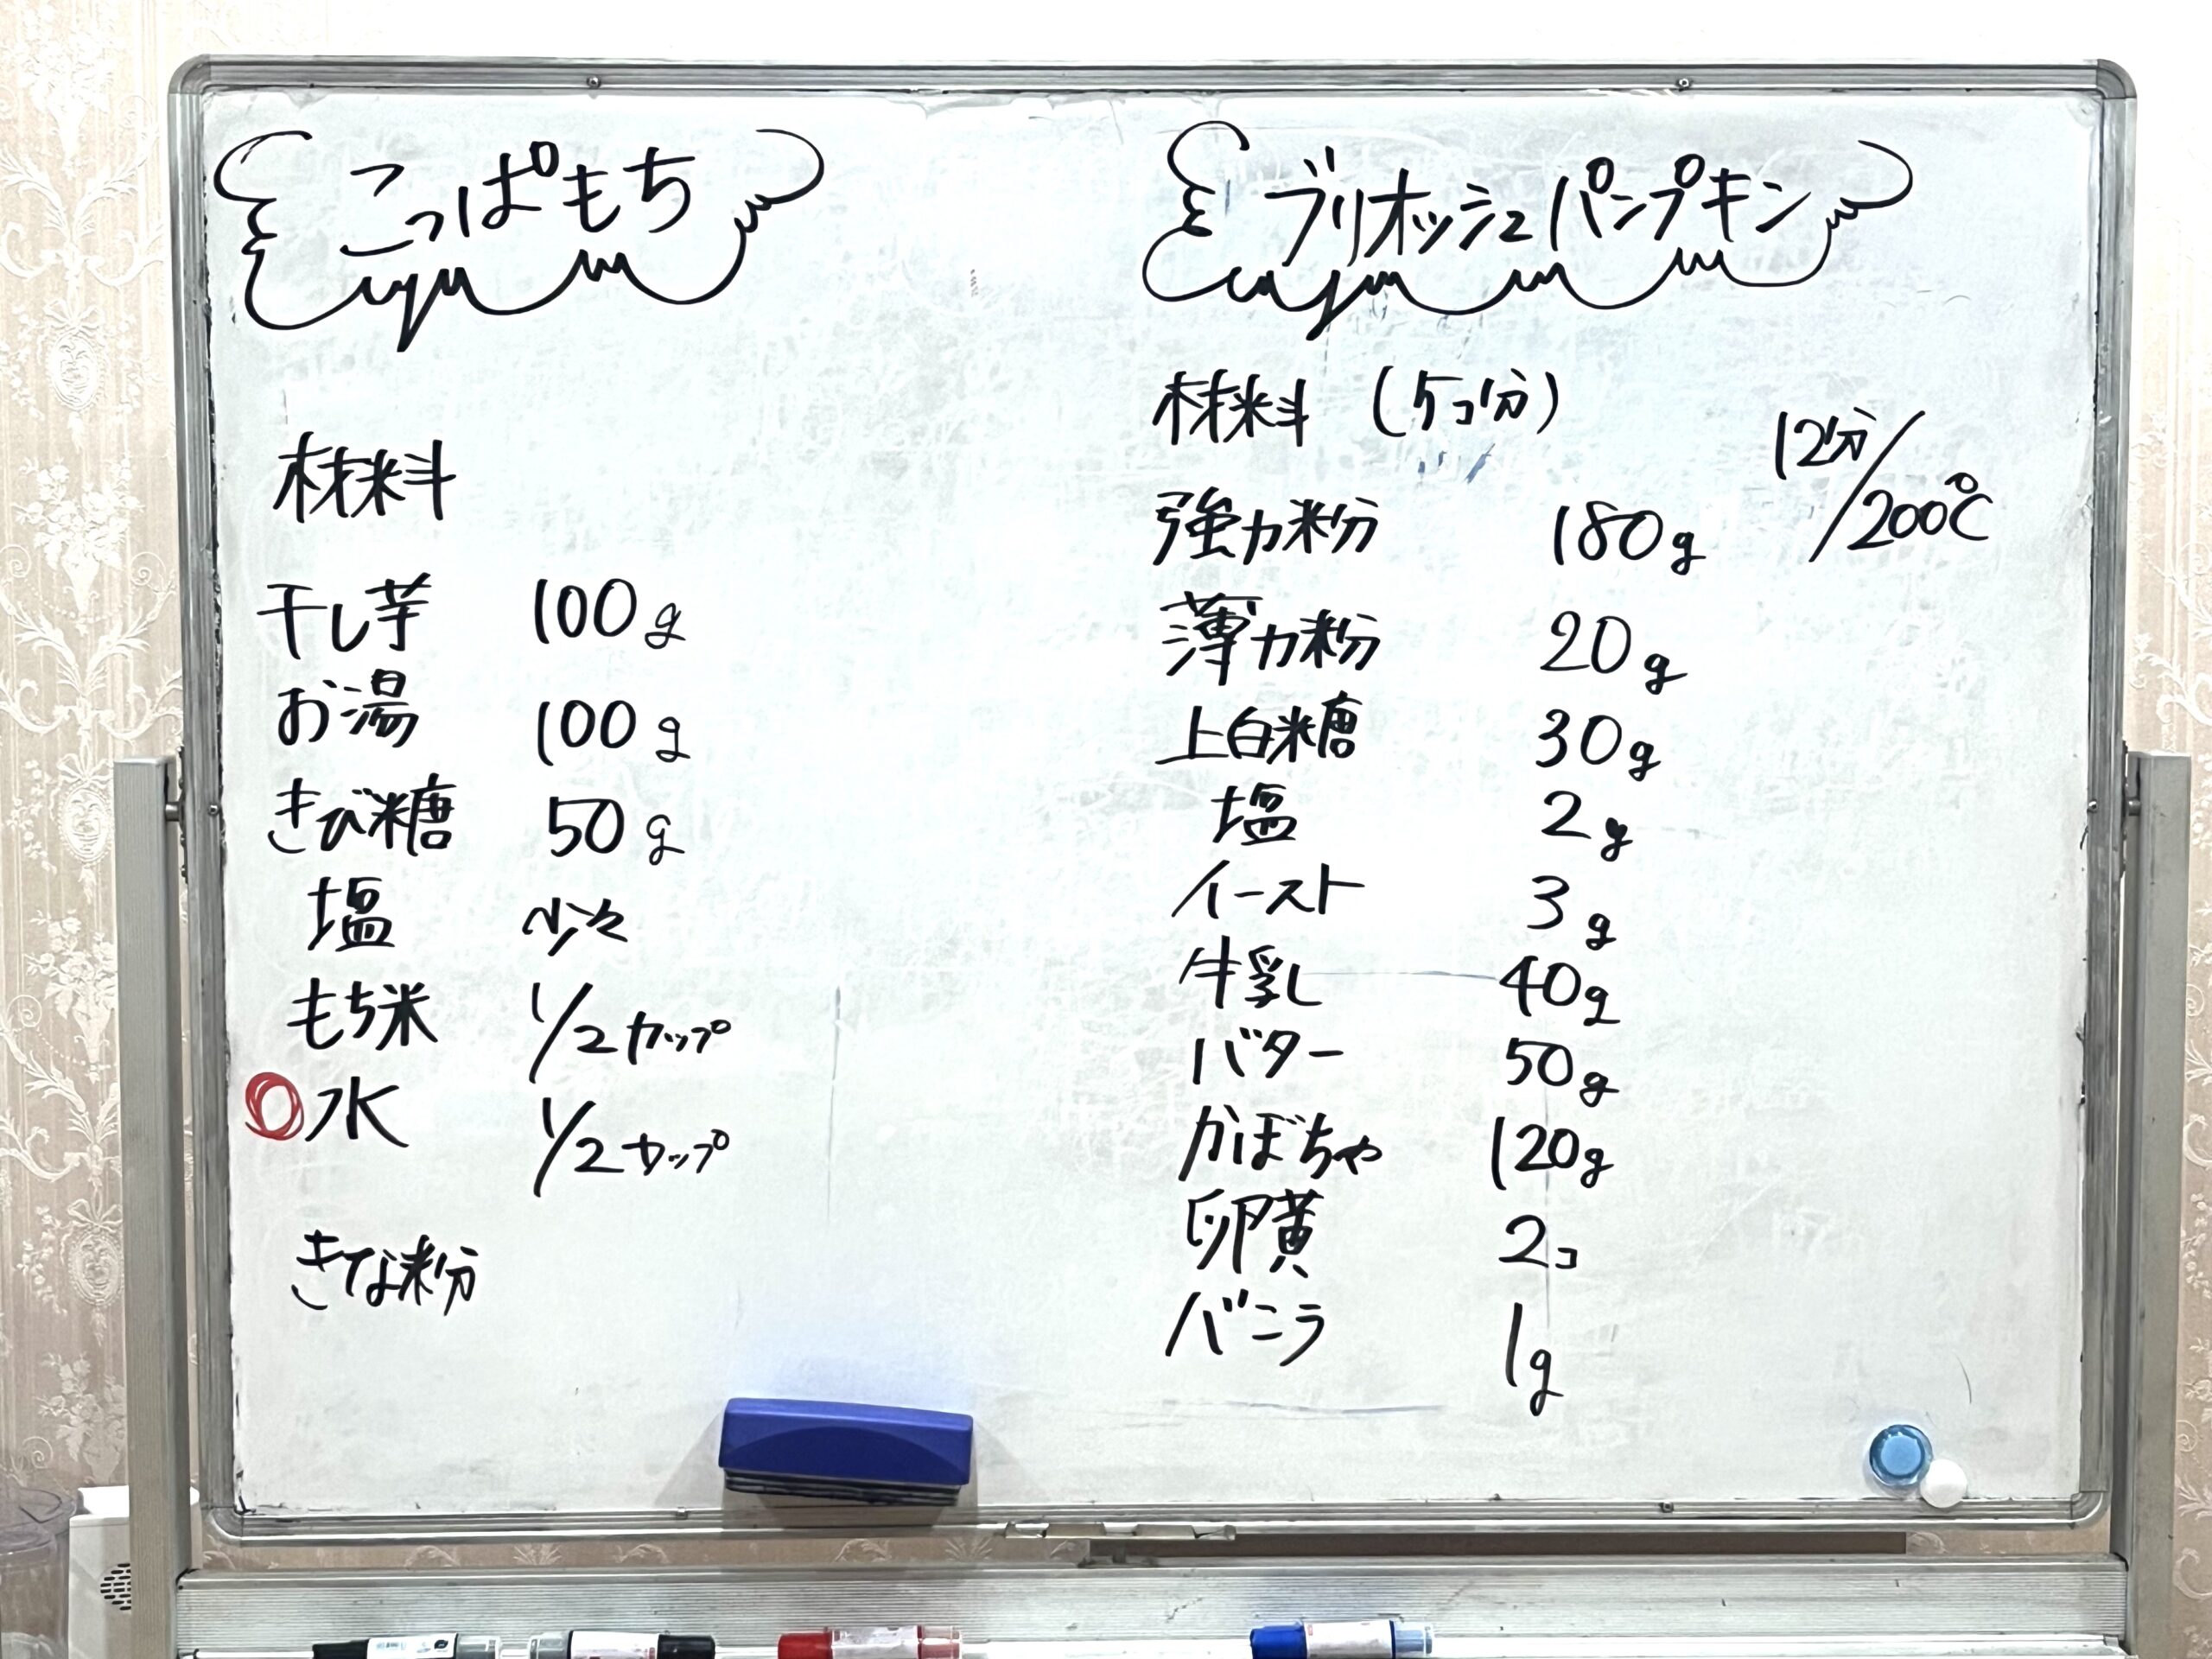 こっぱもち
材料
干し芋 100g
お湯 100g
きび糖 50g
塩 少々
もち米 1/2カップ
水 1/2カップ
きな粉
ブリオッシュパンプキン
材料 (5コ分)
12分/200℃
強力粉 180g
薄力粉 20g
上白糖 30g
塩 2g
イースト 3g
牛乳 40g
バター 50g
かぼちゃ 120g
卵黄 2コ
バニラ 1g